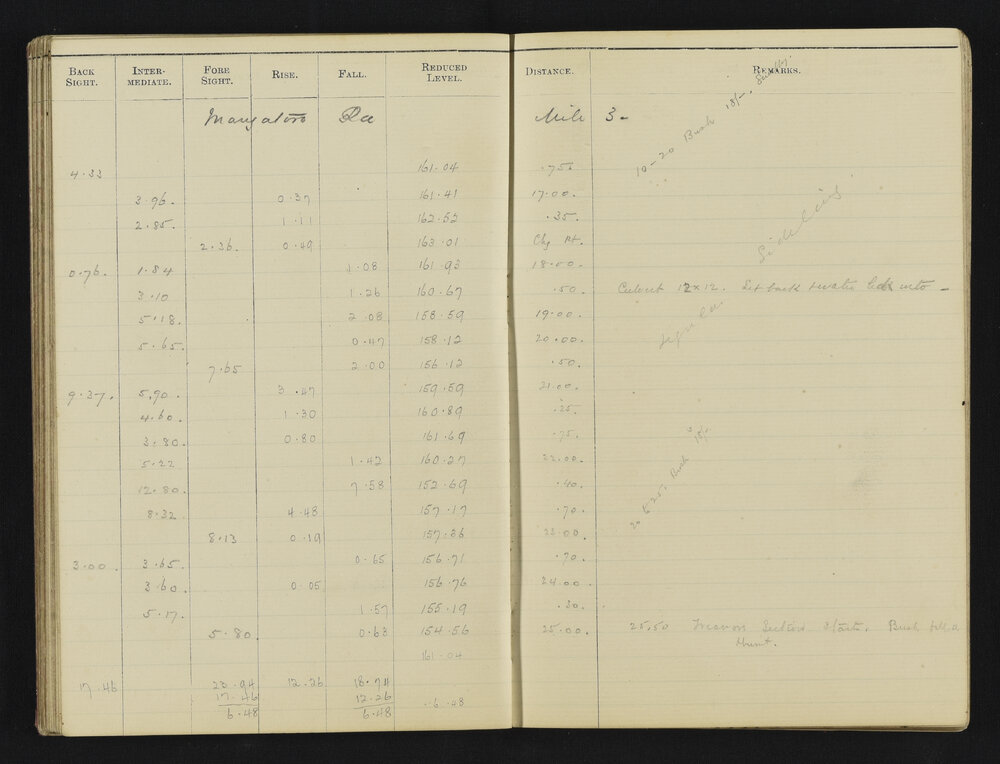 BACK SIGHT. INTER- MEDIATE. FORE SIGHT. RISE. FALL. REDUCED LEVEL. DISTANCE. REMARKS.
Mangatoro Rd Mile 3 -
10 - 20 Bush 18/-.
4.33 161.04 .75.
3.96. 0.37 161.41 17.00.
2.85. 1.11 162.52 .35.
2.36. 0.49 163.01 Chg Pt.
Sideling
0.76. 1.84 1.08 161.93 18.00.
3.10 1.26 160.67 .50. Culvert 12 x 12. Set back & water led into -
5.18. 2.08 158.59 19.00.
5.65. 0.47 158.12 20.00.
7.65 2.00 156.12 .50.
9.37. 5.90. 3.47 159.59 21.00.
4.60. 1.30 160.89 .25.
3.80. 0.80 161.69 .75.
5.22 1.42 160.27 22.00.
20 to 25. Bush 15/-
12.80. 7.58 152.69 .40.
8.32. 4.48 157.17 .70.
8.13 0.19 157.36 23.00.
3.00. 3.65. 0.65 156.71 .70.
3.60. 0.05 156.76 24.00.
5.17. 1.57 155.19 .30.
5.80. 0.63 154.56 25.00. 25.50 Section starts. Bush fell.d
burnt.
161.04
17.46 23.94 12.26 18.74
17.46 12.26
6.48 6.48 6.48